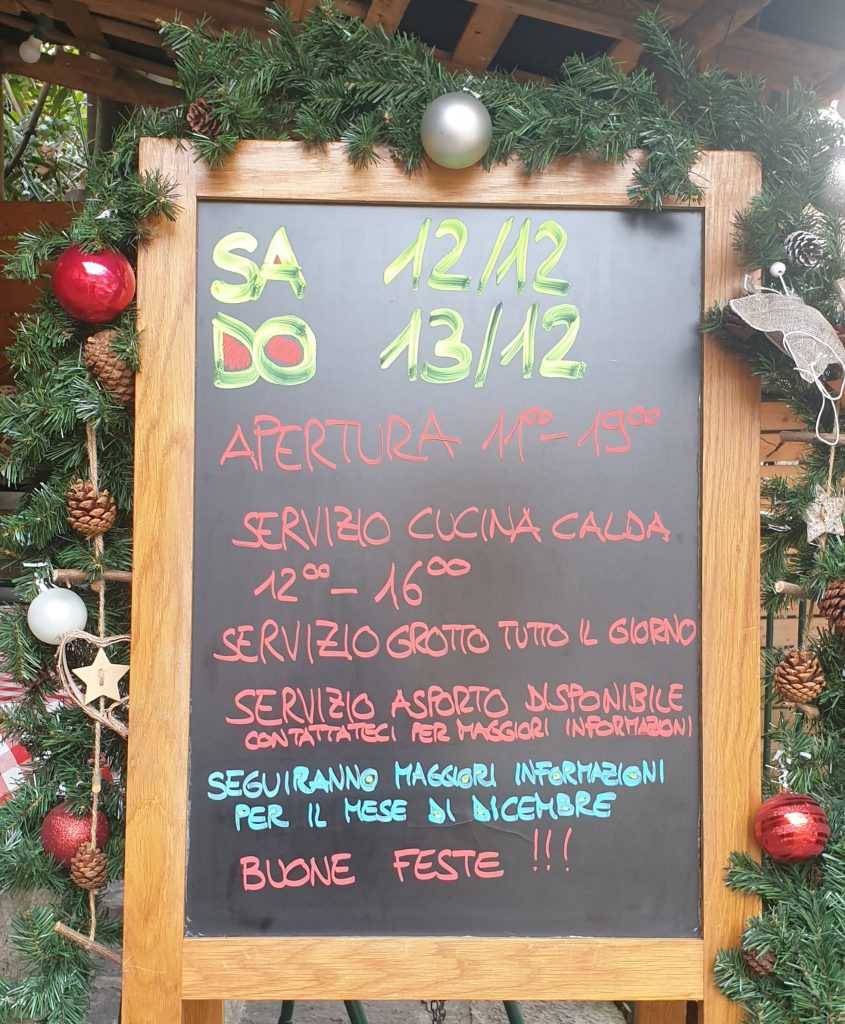 SA 12/12
DO 13/12
APERTURA 11⁰⁰ - 19⁰⁰
SERVIZIO CUCINA CALDA
12⁰⁰ - 16⁰⁰
SERVIZIO GROTTO TUTTO IL GIORNO
SERVIZIO ASPORTO DISPONIBILE
CONTATTATECI PER MAGGIORI INFORMAZIONI
SEGUIRANNO MAGGIORI INFORMAZIONI
PER IL MESE DI DICEMBRE
BUONE FESTE !!!